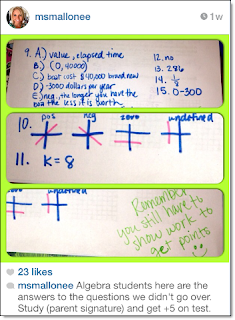 msmallonee
1w
9. A.) value, elapsed time
B.) (0, 40000)
C.) boat cost $40,000 brand new
D.) -3000 dollars per year
E.) neg., the longer you have the
boa the less it is worth
12. no
13. 286
14. 1/2
15. 0-300
10. pos neg zero undefined
11. K = 8
undefined
Remember
you still have to
show work to
get points
23 likes
msmallonee Algebra students here are
the answers to the questions we didn't go over.
Study (parent signature) and get +5 on test.